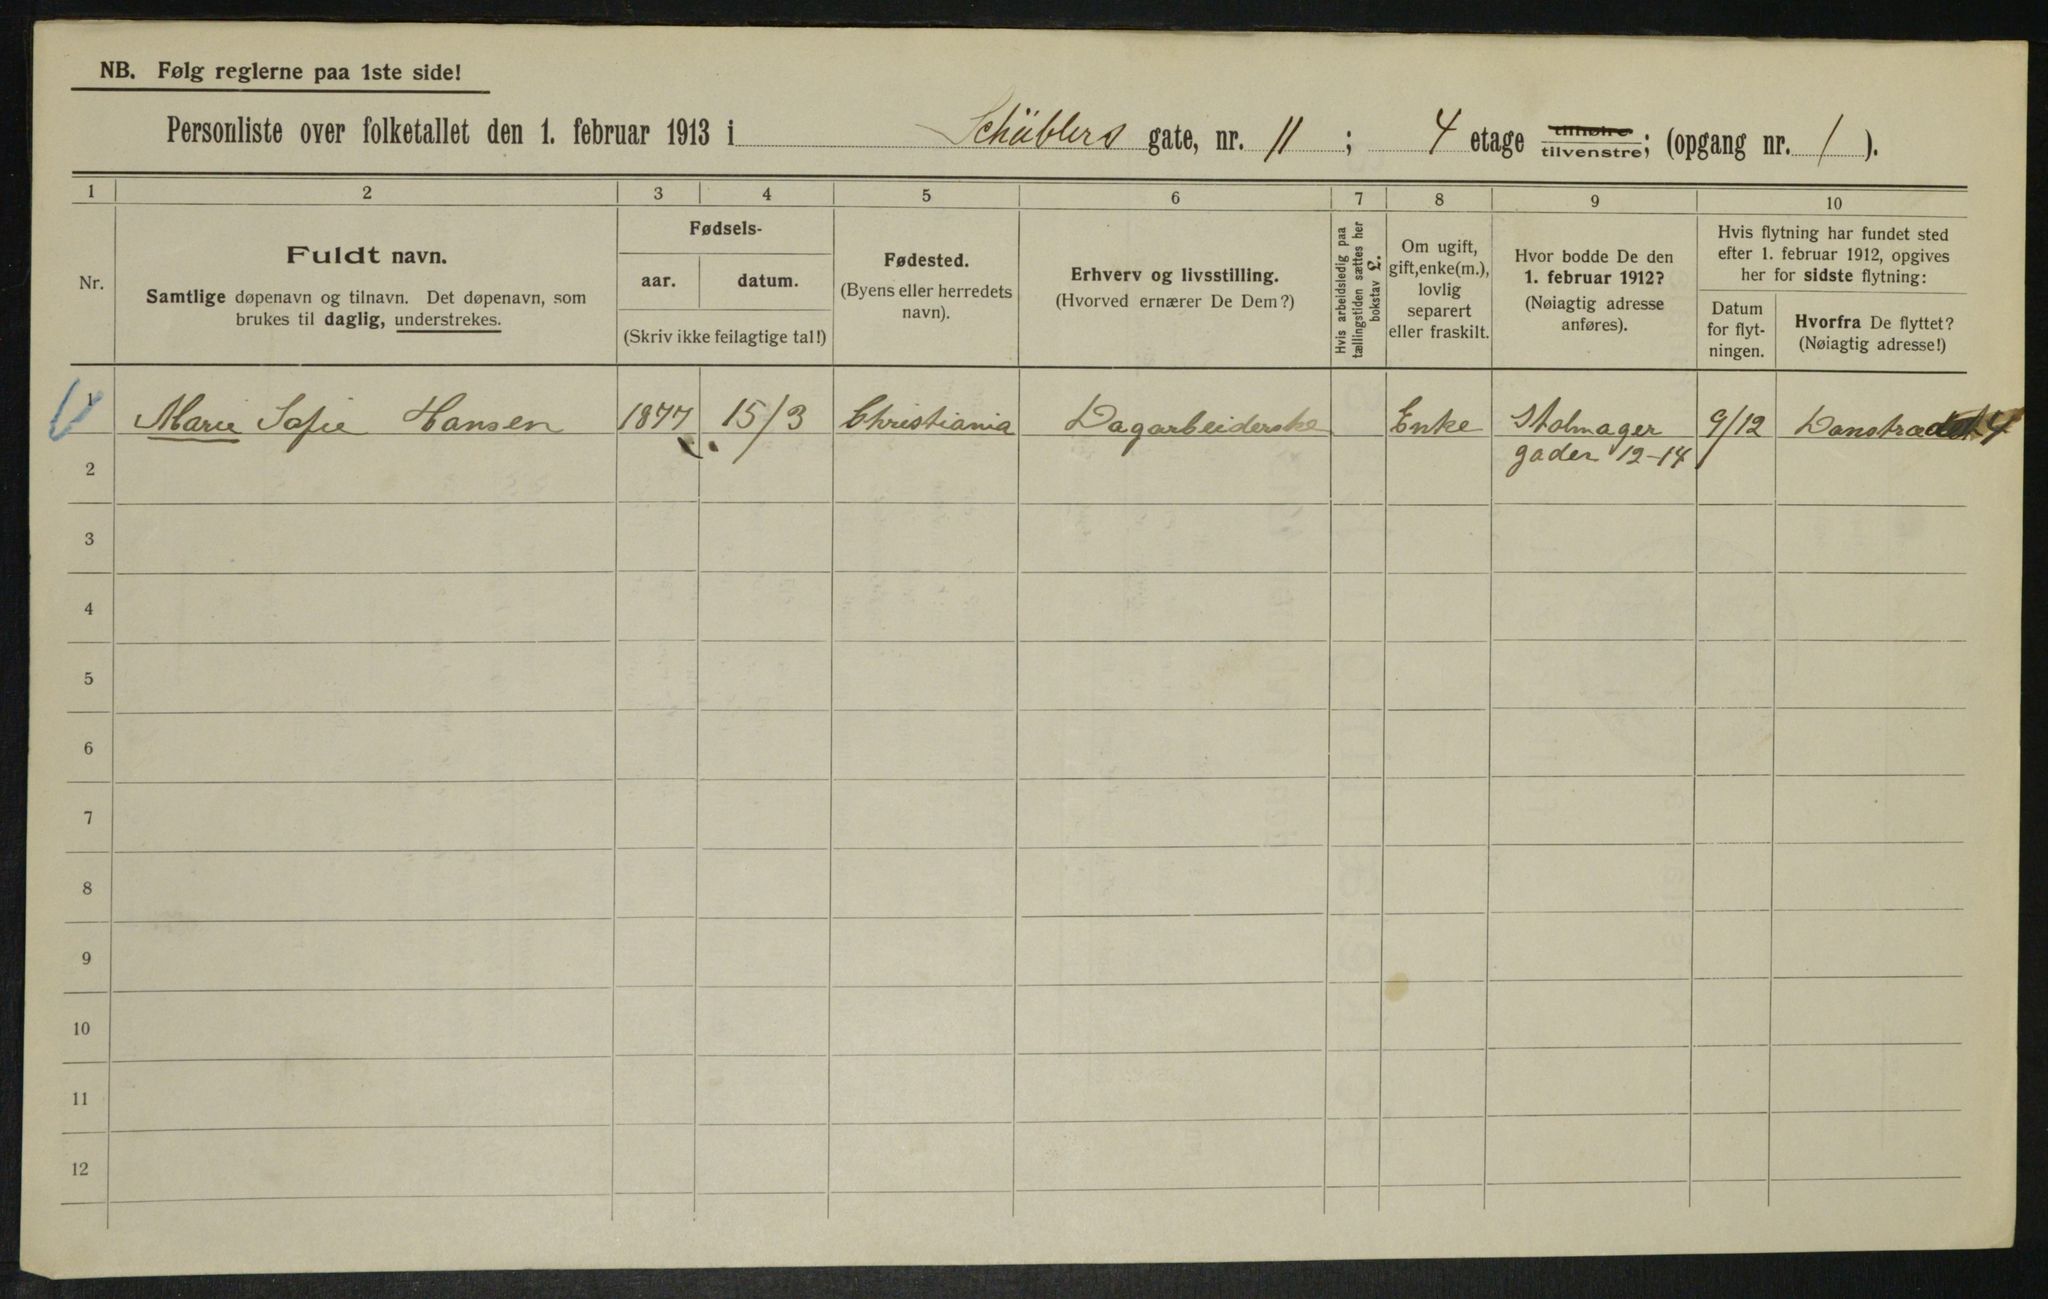 NB. Følg reglerne paa 1ste side!
Personliste over folketallet den 1. februar 1913 i Schüblers gate, nr. 11 ; 4 etage tilhøire tilvenstre; (opgang nr. 1 ).
1 2 3 4 5 6 7 8 9 10
Nr.
Fuldt navn.
Samtlige døpenavn og tilnavn. Det døpenavn, som
brukes til daglig, understrekes.
Fødsels-
aar. datum.
(Skriv ikke feilagtige tal!)
Fødested.
(Byens eller herredets
navn).
Erhverv og livsstilling.
(Hvorved ernærer De Dem?)
Hvis arbeidsledig paa
tællingstiden sættes her
bokstav L.
Om ugift,
gift, enke(m.),
lovlig
separert
eller fraskilt.
Hvor bodde De den
1. februar 1912?
(Nøiagtig adresse
anføres).
Hvis flytning har fundet sted
efter 1. februar 1912, opgives
her for sidste flytning:
Datum
for flyt-
ningen.
Hvorfra De flyttet?
(Nøiagtig adresse!)
1 Marie Sofie Hansen 1877 15/3 Christiania Dagarbeiderske Enke Stolmager 9/12 4
gaden 12-14
2
3
4
5
6
7
8
9
10
11
12